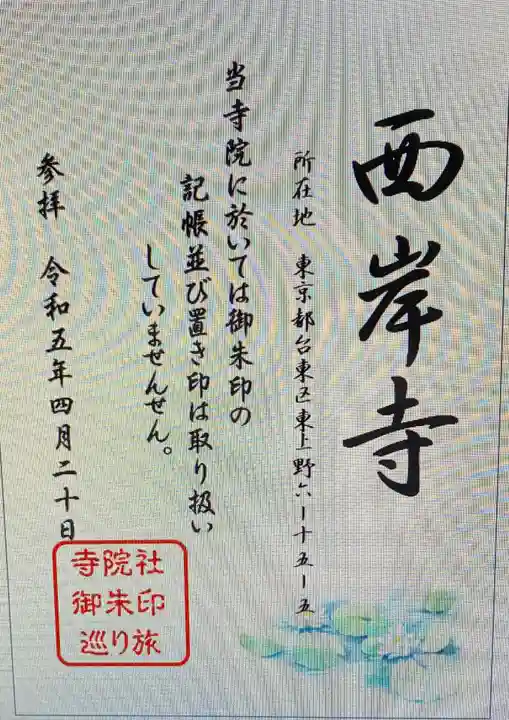 西岸寺
所在地 東京都台東区東上野六ー十五ー五
当寺院に於いては御朱印の
記帳並び置き印は取り扱い
していませんせん。
参拝 令和五年四月二十日
寺院社
御朱印
巡り旅